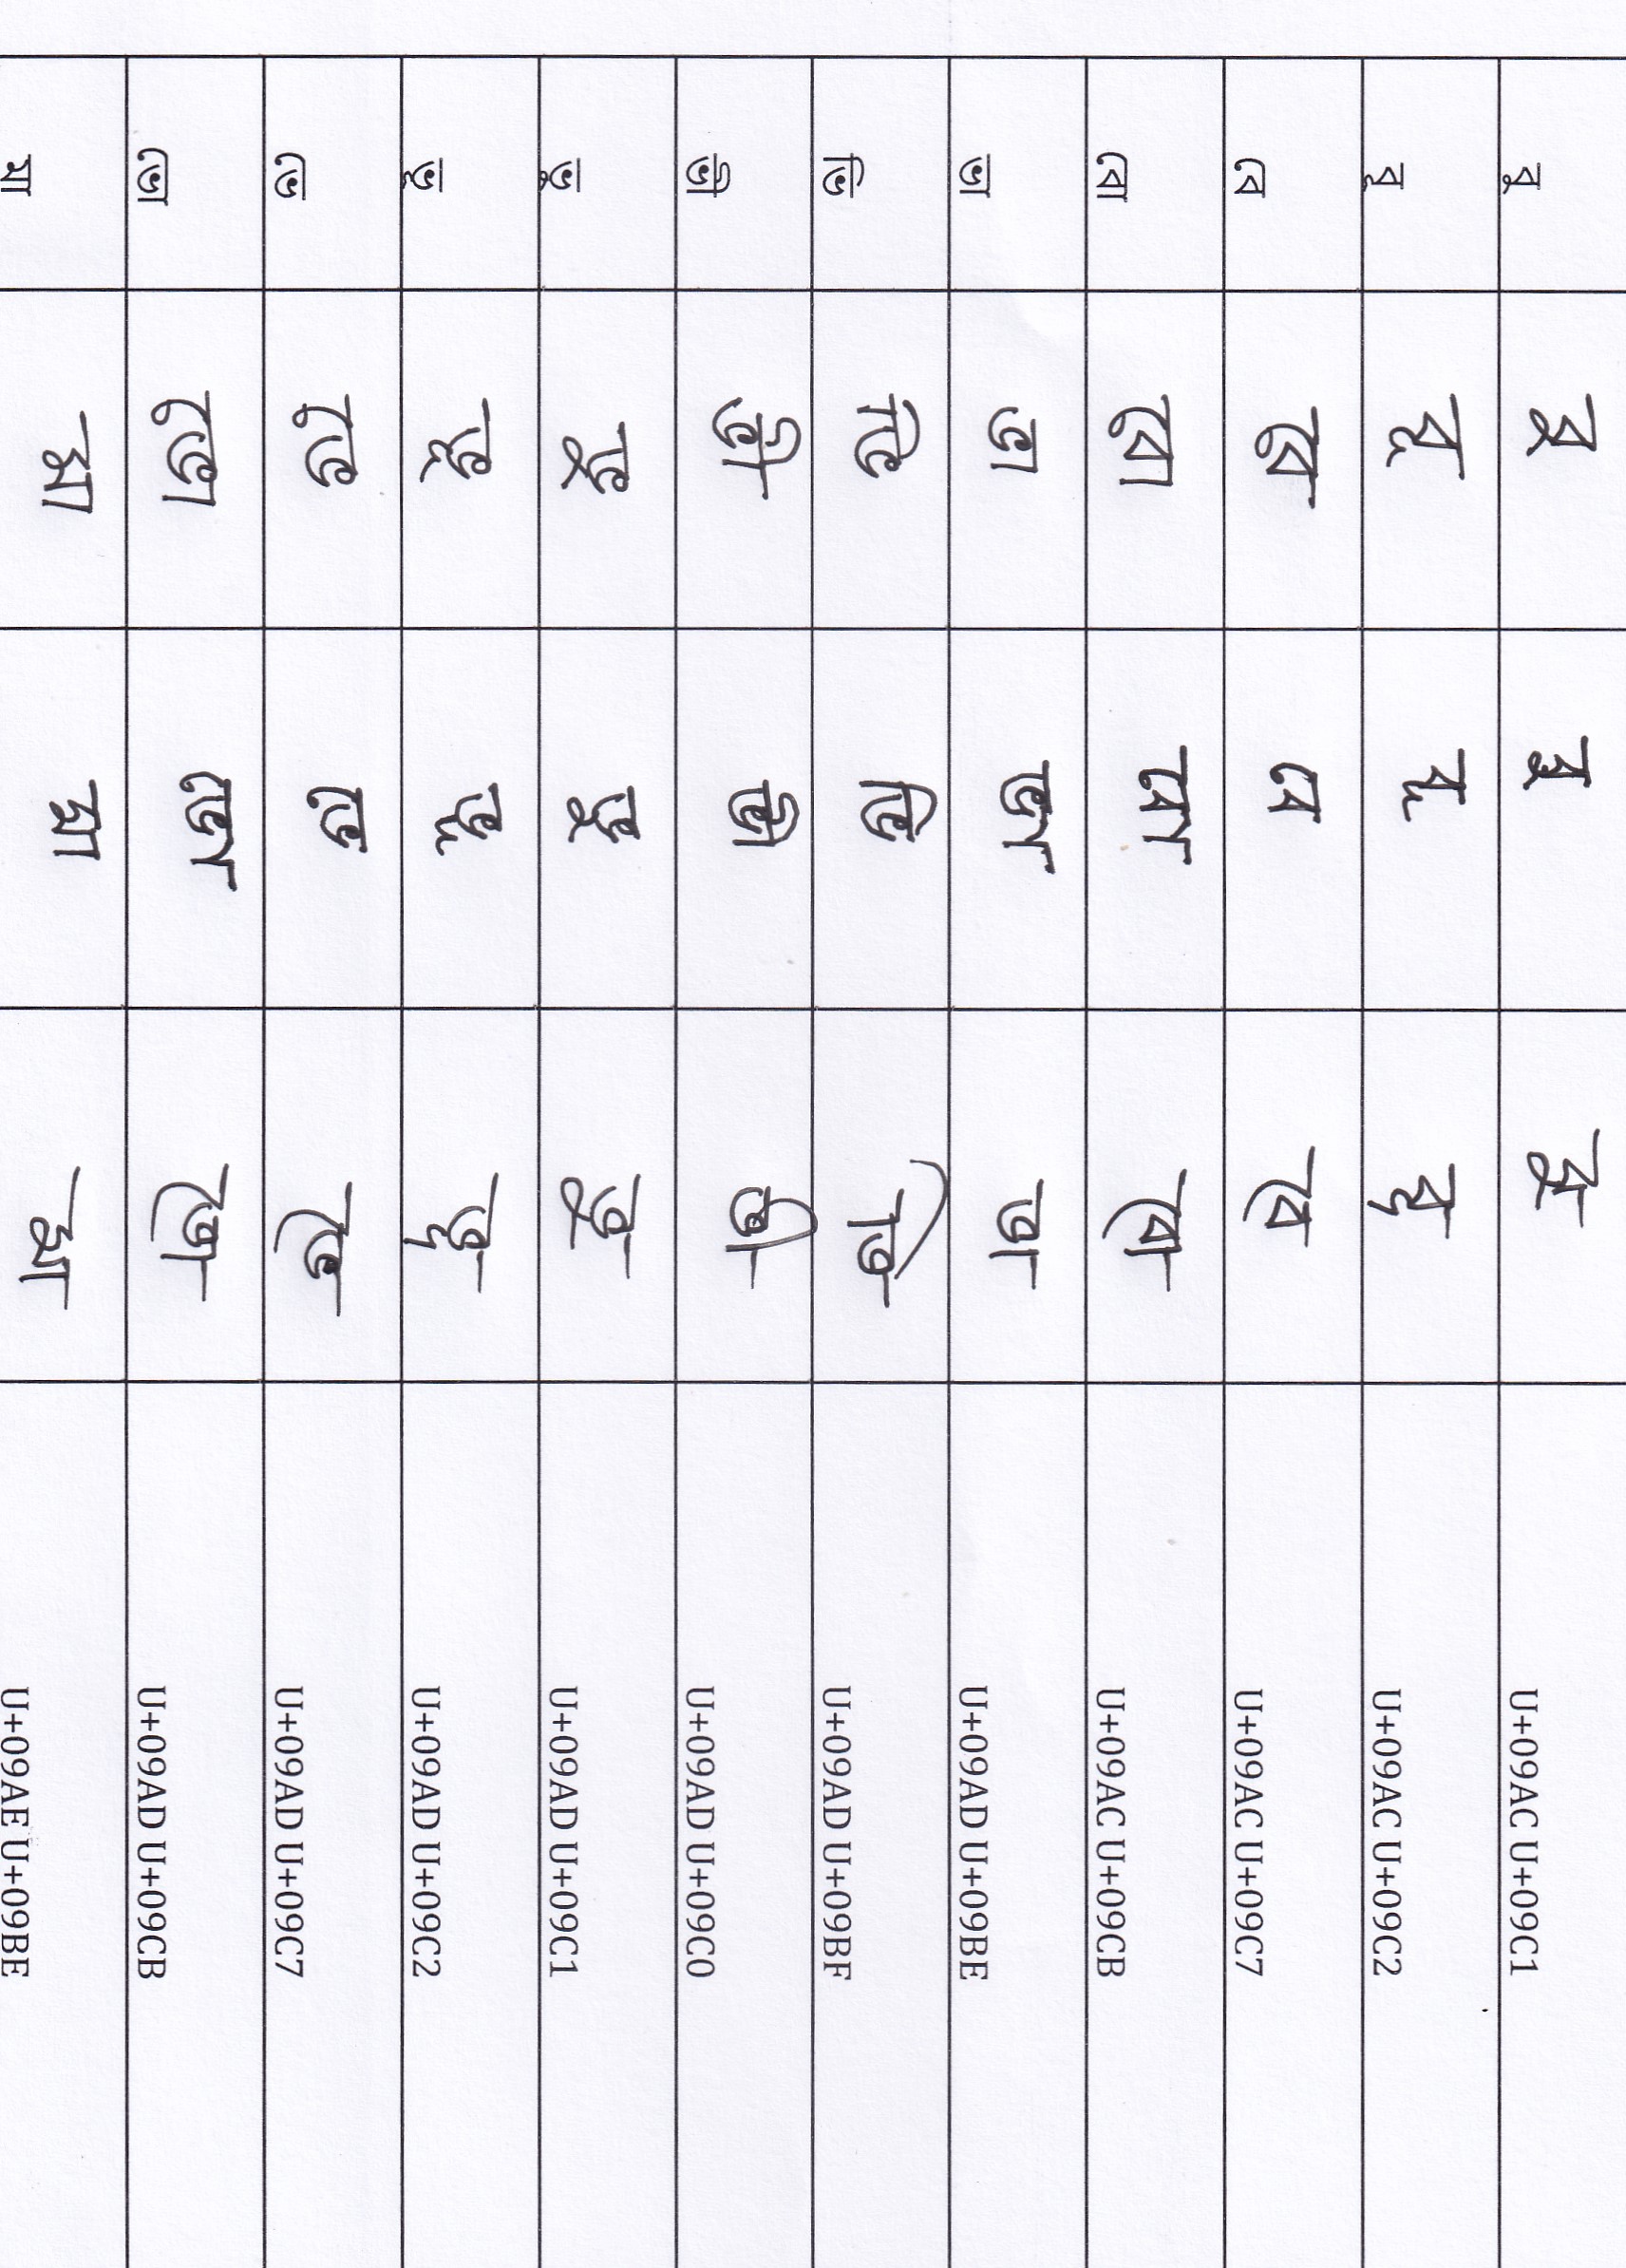 বু বু বু বু U+09AC U+09C1
বূ বূ বূ বূ U+09AC U+09C2
বে বে বে বে U+09AC U+09C7
বো বো বো বো U+09AC U+09CB
ভা ভা ভা ভা U+09AD U+09BE
ভি ভি ভি ভি U+09AD U+09BF
ভী ভী ভী ভী U+09AD U+09C0
ভু ভু ভু ভু U+09AD U+09C1
ভূ ভূ ভূ ভূ U+09AD U+09C2
ভে ভে ভে ভে U+09AD U+09C7
ভো ভো ভো ভো U+09AD U+09CB
মা মা মা মা U+09AE U+09BE